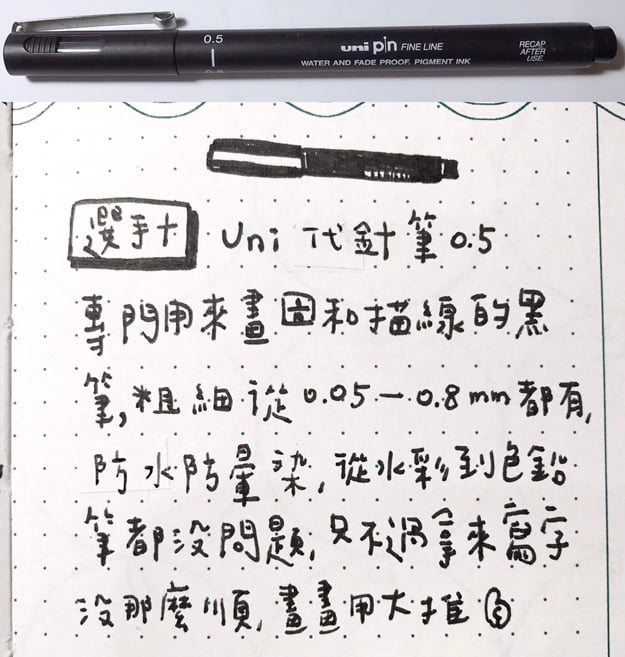 0.5
uni pin FINE LINE
WATER AND FADE PROOF, PIGMENT INK
RECAP
AFTER
USE.
選手十 Uni 代針筆 0.5
專門用來畫圖和描線的黑
筆,粗細從 0.05 — 0.8 mm 都有,
防水防暈染,從水彩到色鉛
筆都沒問題,只不過拿來寫字
沒那麼順,畫畫用大推